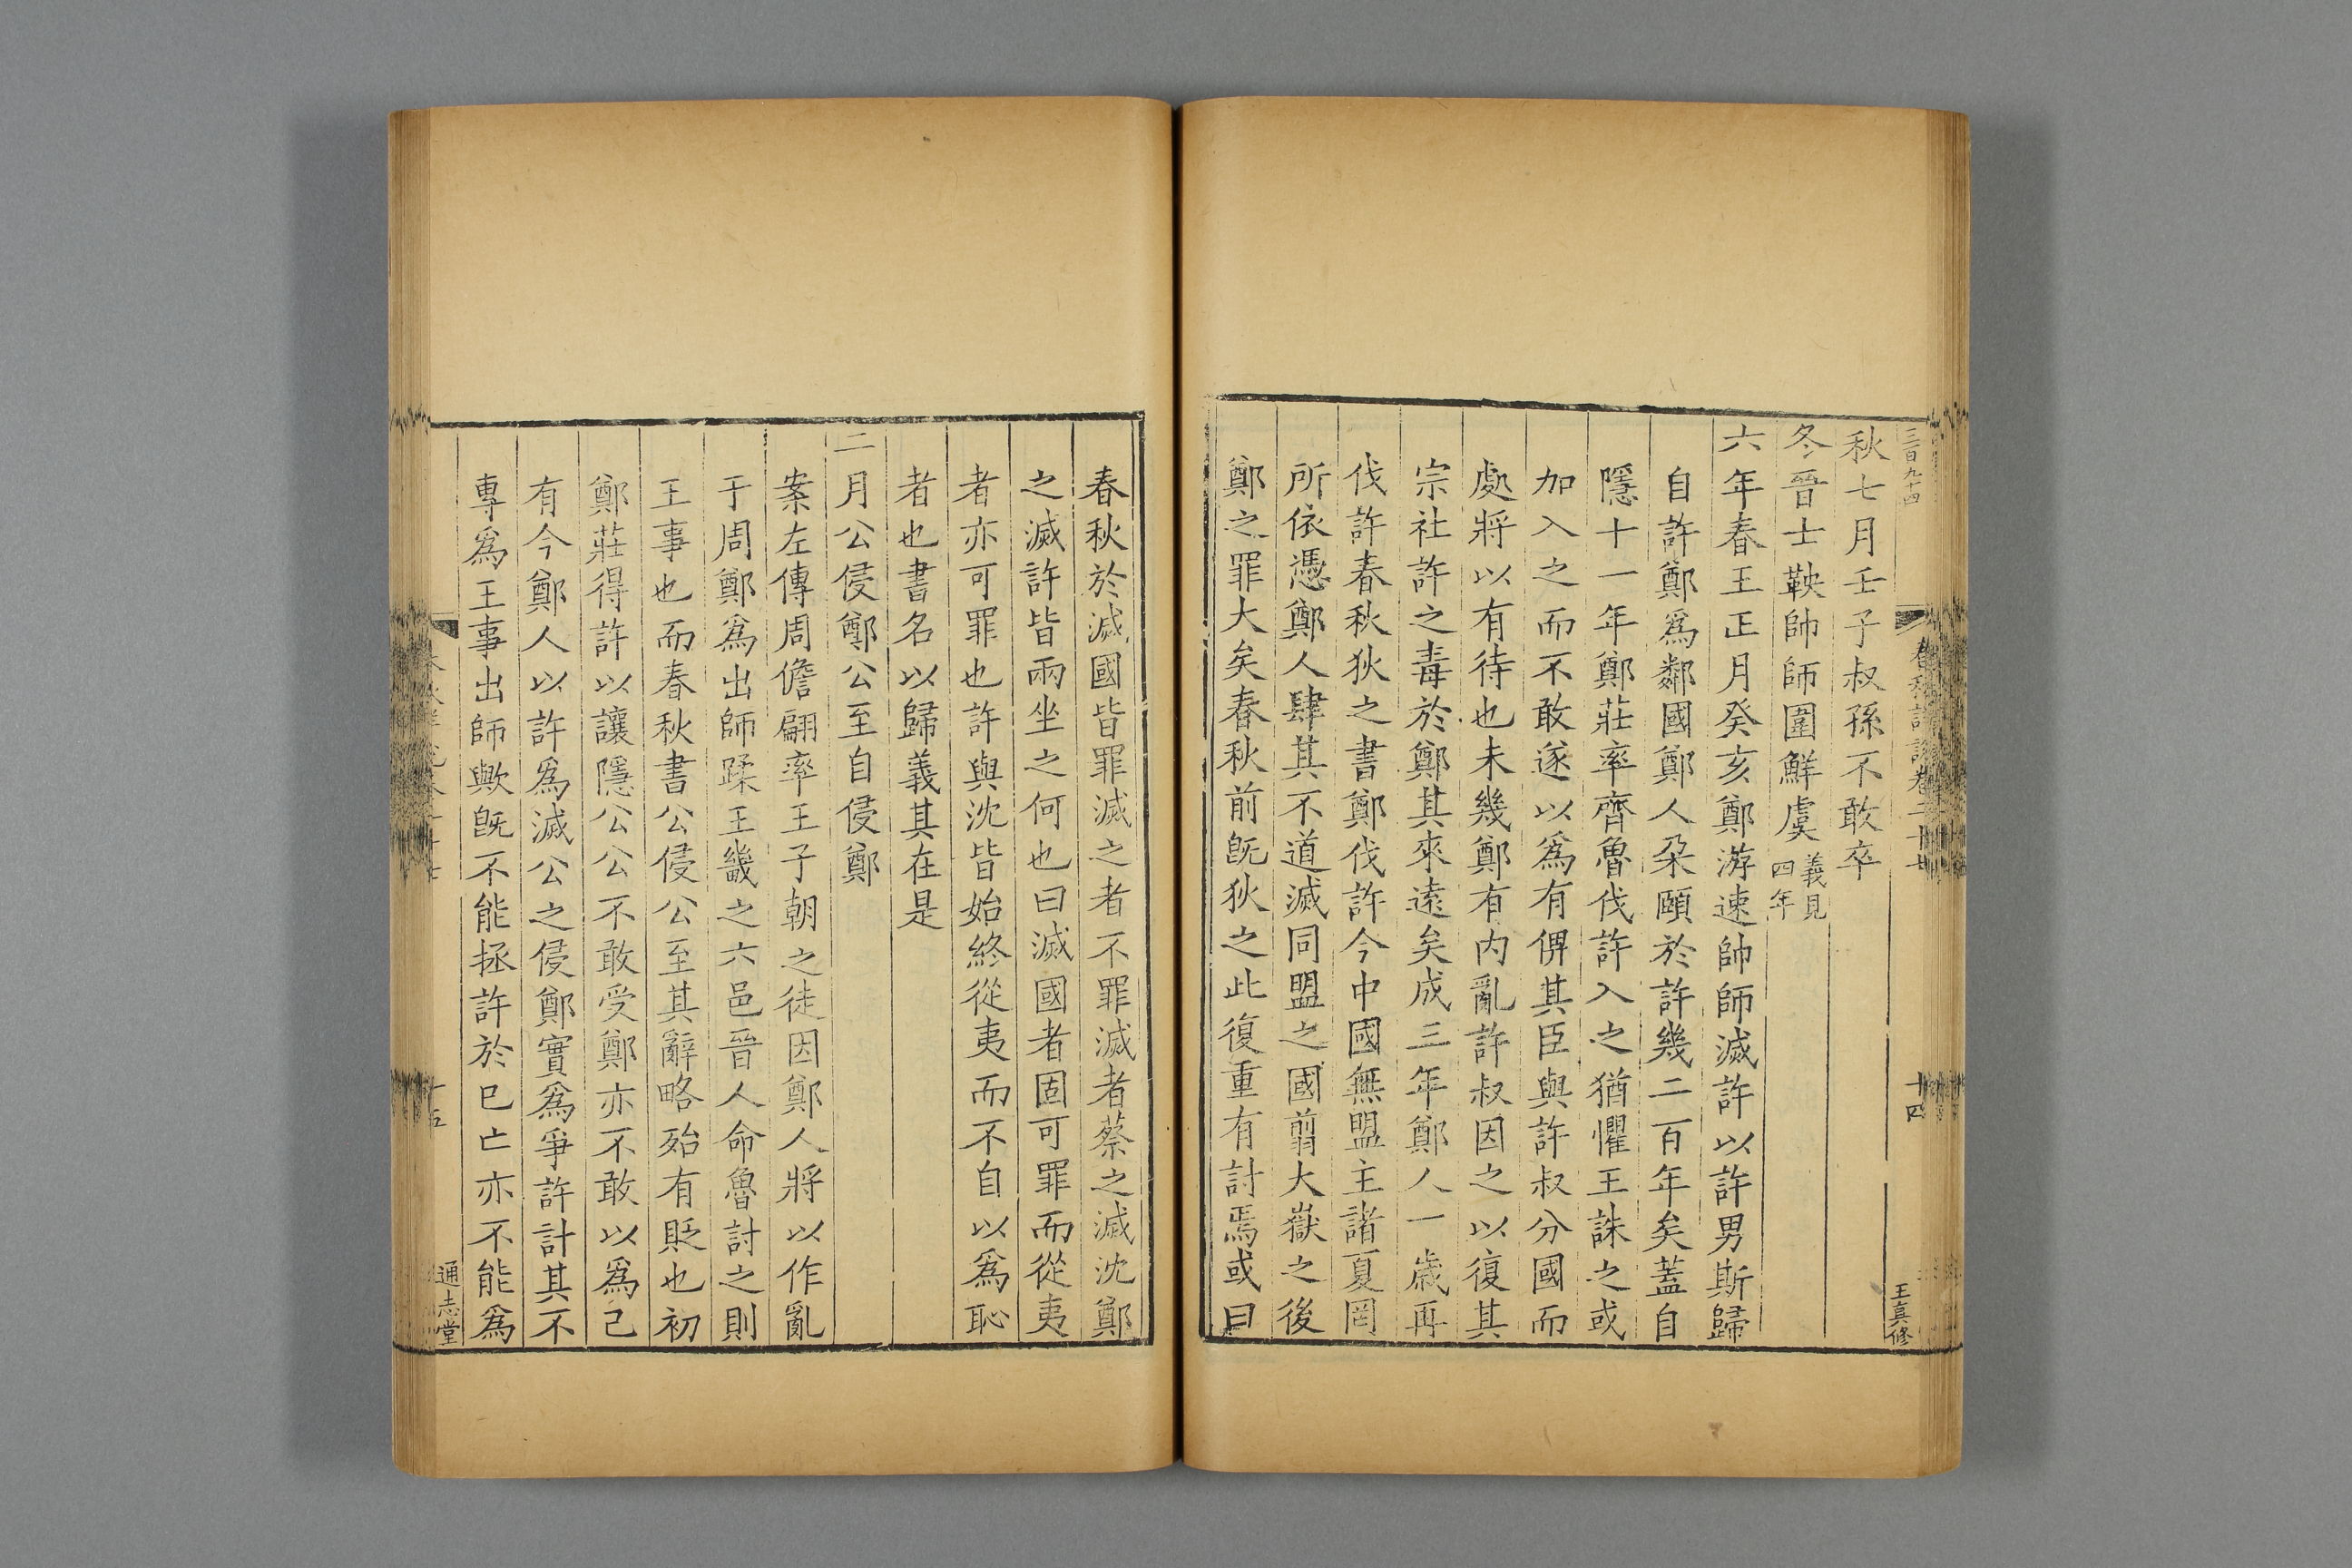 三百九十四
春秋詳說卷二十七
十四
王真修
秋七月壬子叔孫不敢卒
冬晉士鞅帥師圍鮮虞義見四年
六年春王正月癸亥鄭游速帥師滅許以許男斯歸
自許鄭爲鄰國鄭人朶頤於許幾二百年矣蓋自
隱十一年鄭莊率齊魯伐許入之猶懼王誅之或
加入之而不敢遂以爲有俾其臣與許叔分國而
處將以有待也未幾鄭有内亂許叔因之以復其
宗社許之毒於鄭其來遠矣成三年鄭人一歲再
伐許春秋狄之書鄭伐許今中國無盟主諸夏罔
所依憑鄭人肆其不道滅同盟之國翦大嶽之後
鄭之罪大矣春秋前旣狄之此復重有討焉或曰
春秋於滅國皆罪滅之者不罪滅者蔡之滅沈鄭
之滅許皆兩坐之何也曰滅國者固可罪而從夷
者亦可罪也許與沈皆始終從夷而不自以爲恥
者也書名以歸義其在是
二月公侵鄭公至自侵鄭
案左傳周儋翩率王子朝之徒因鄭人將以作亂
于周鄭爲出師蹂王畿之六邑晉人命魯討之則
王事也而春秋書公侵公至其辭略殆有貶也初
鄭莊得許以讓隱公公不敢受鄭亦不敢以爲己
有今鄭人以許爲滅公之侵鄭實爲爭許計其不
專爲王事出師歟旣不能拯許於已亡亦不能爲
十五
通志堂